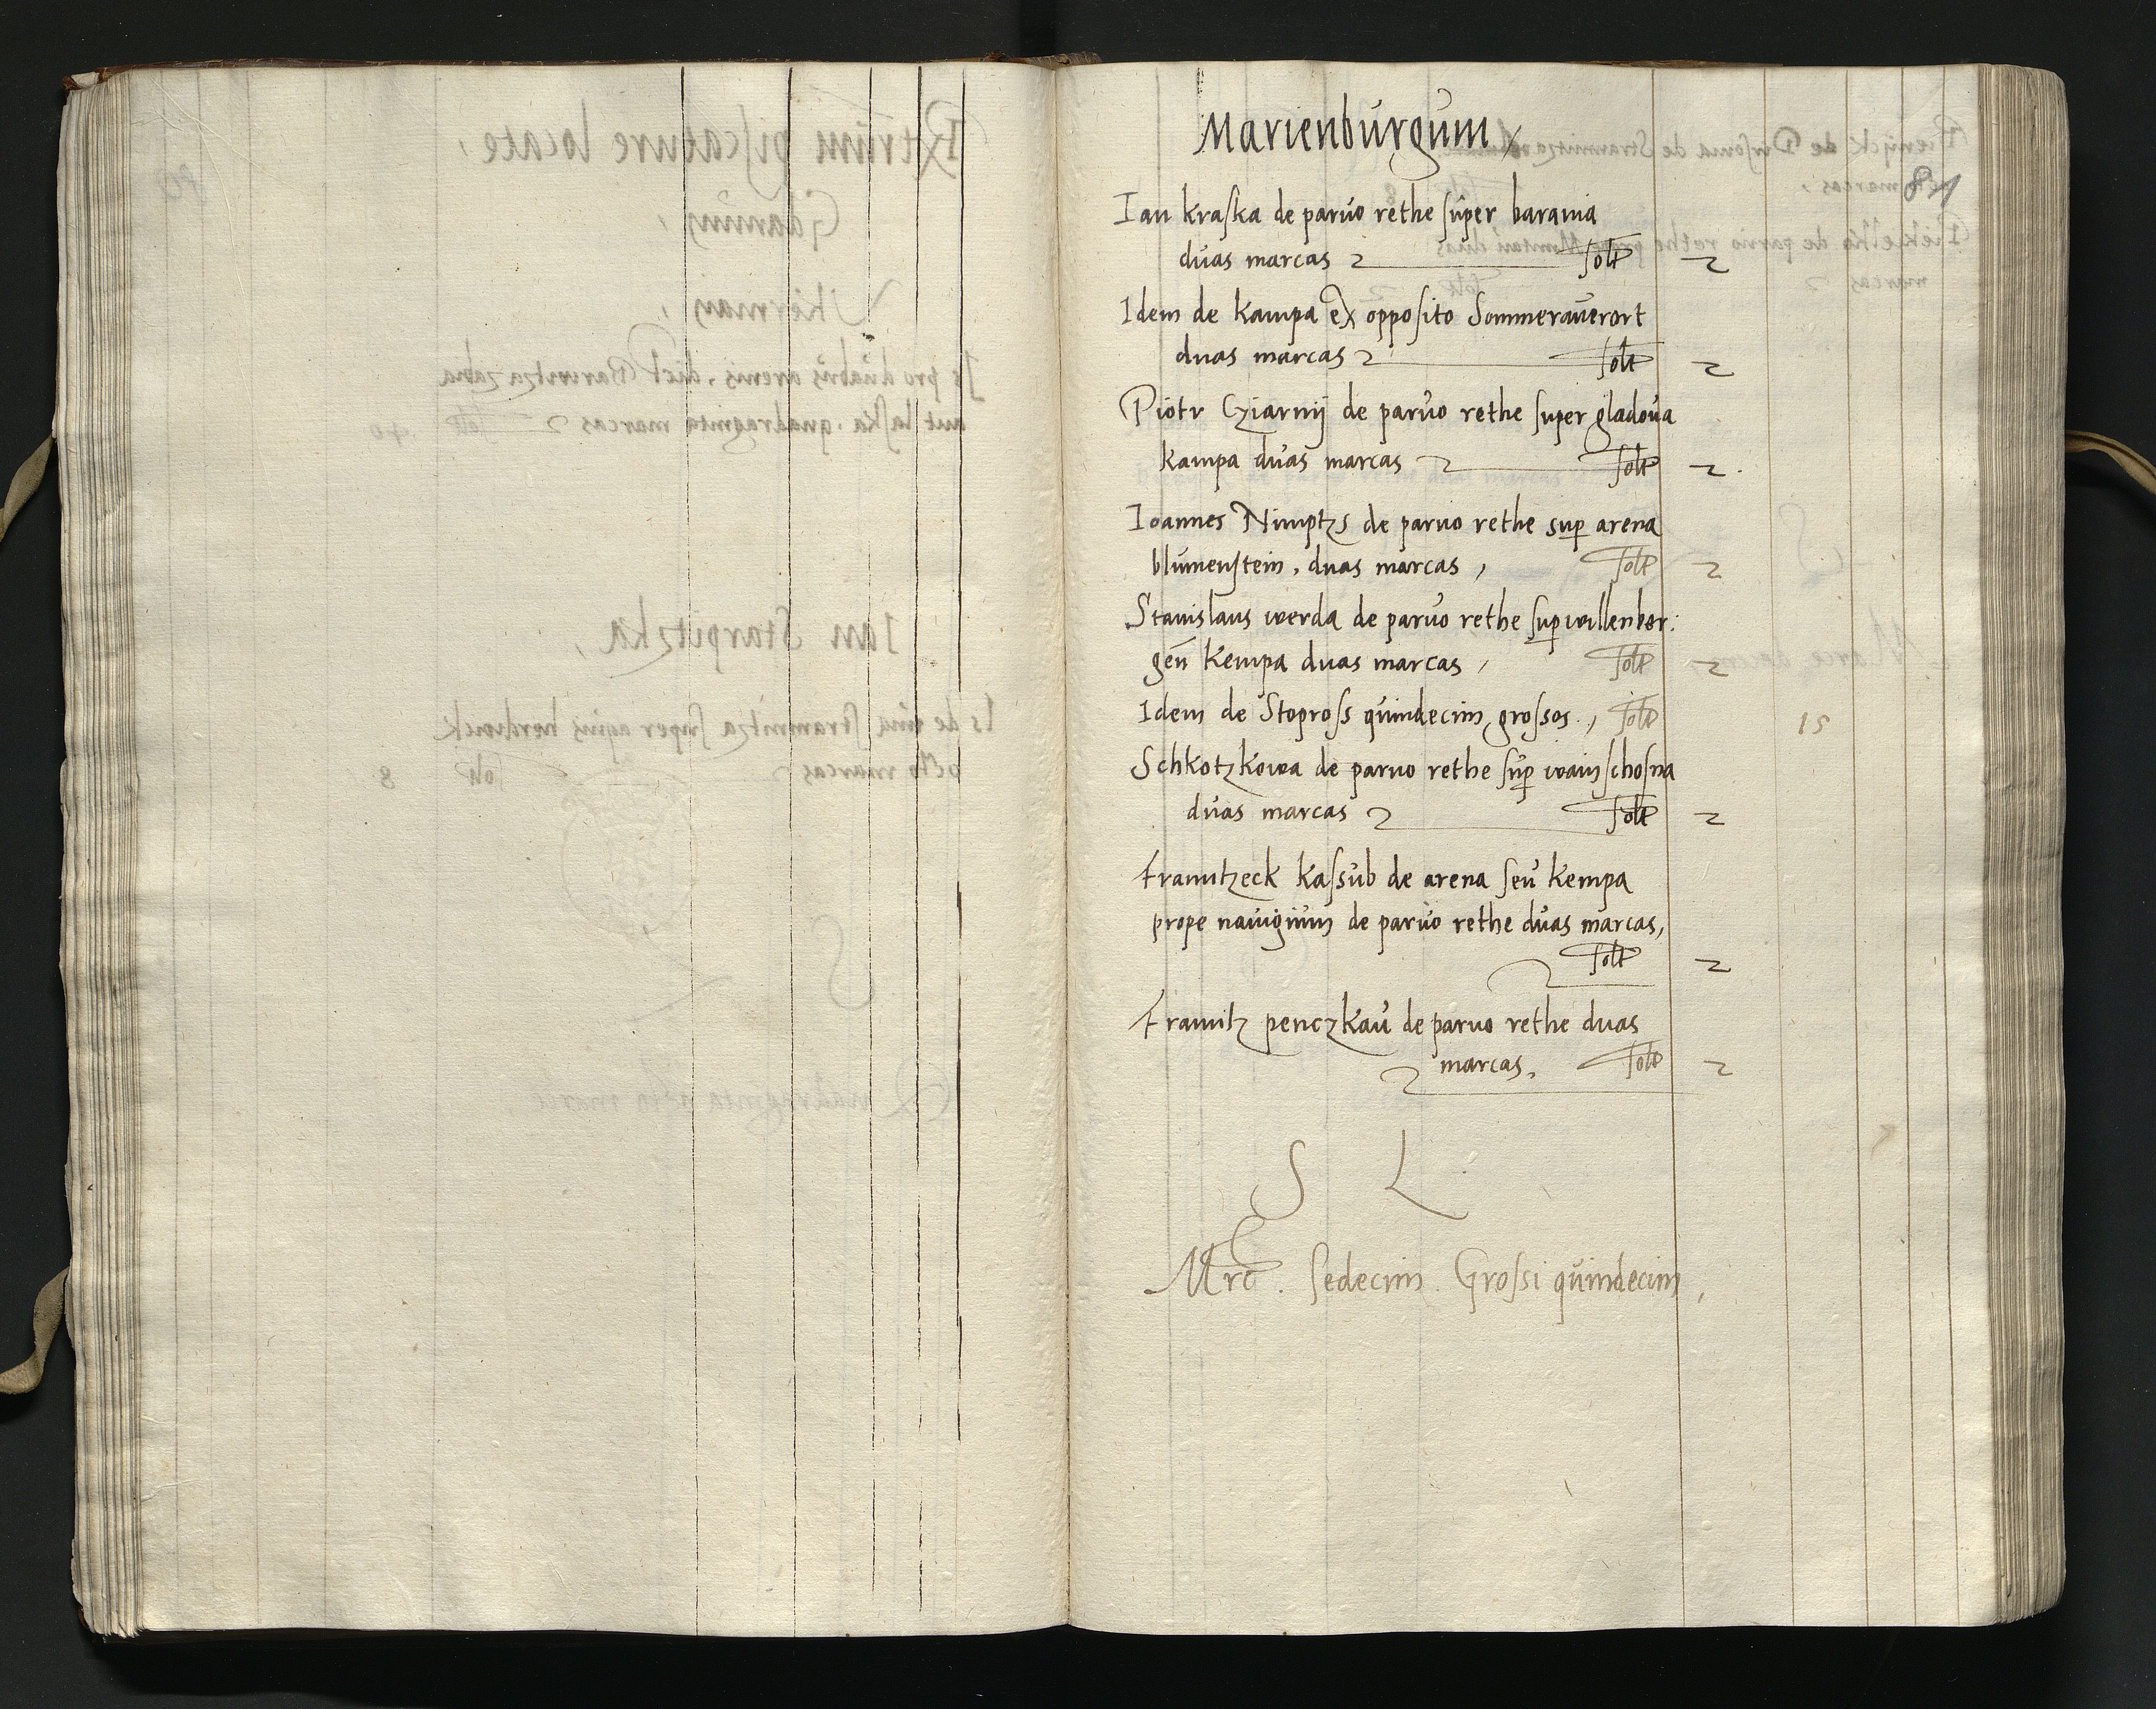 Marienburgum
81
Ian kraska de parvo rethe super barania
duas marcas solt 2
Idem de Kampa ex opposito Sommerauerort
duas marcas solt 2
Piotr Cziarnij de parvo rethe super gladova
Kampa duas marcas solt 2
Ioannes Nimptzs de parvo rethe sup arena
blumenstein, duas marcas, solt 2
Stanislaus werda de parvo rethe sup willenber:
gen Kempa duas marcas, solt 2
Idem de Stopross quindecim grossos, solt 15
Schkotzkowa de parvo rethe sup wainschosna
duas marcas solt 2
Frantzeck Kassub de arena seu Kempa
prope navigium de parvo rethe duas marcas,
solt 2
Frantz penczkau de parvo rethe duas
marcas, solt 2
S L
Mrc. Sedecim. Grossi quindecim,